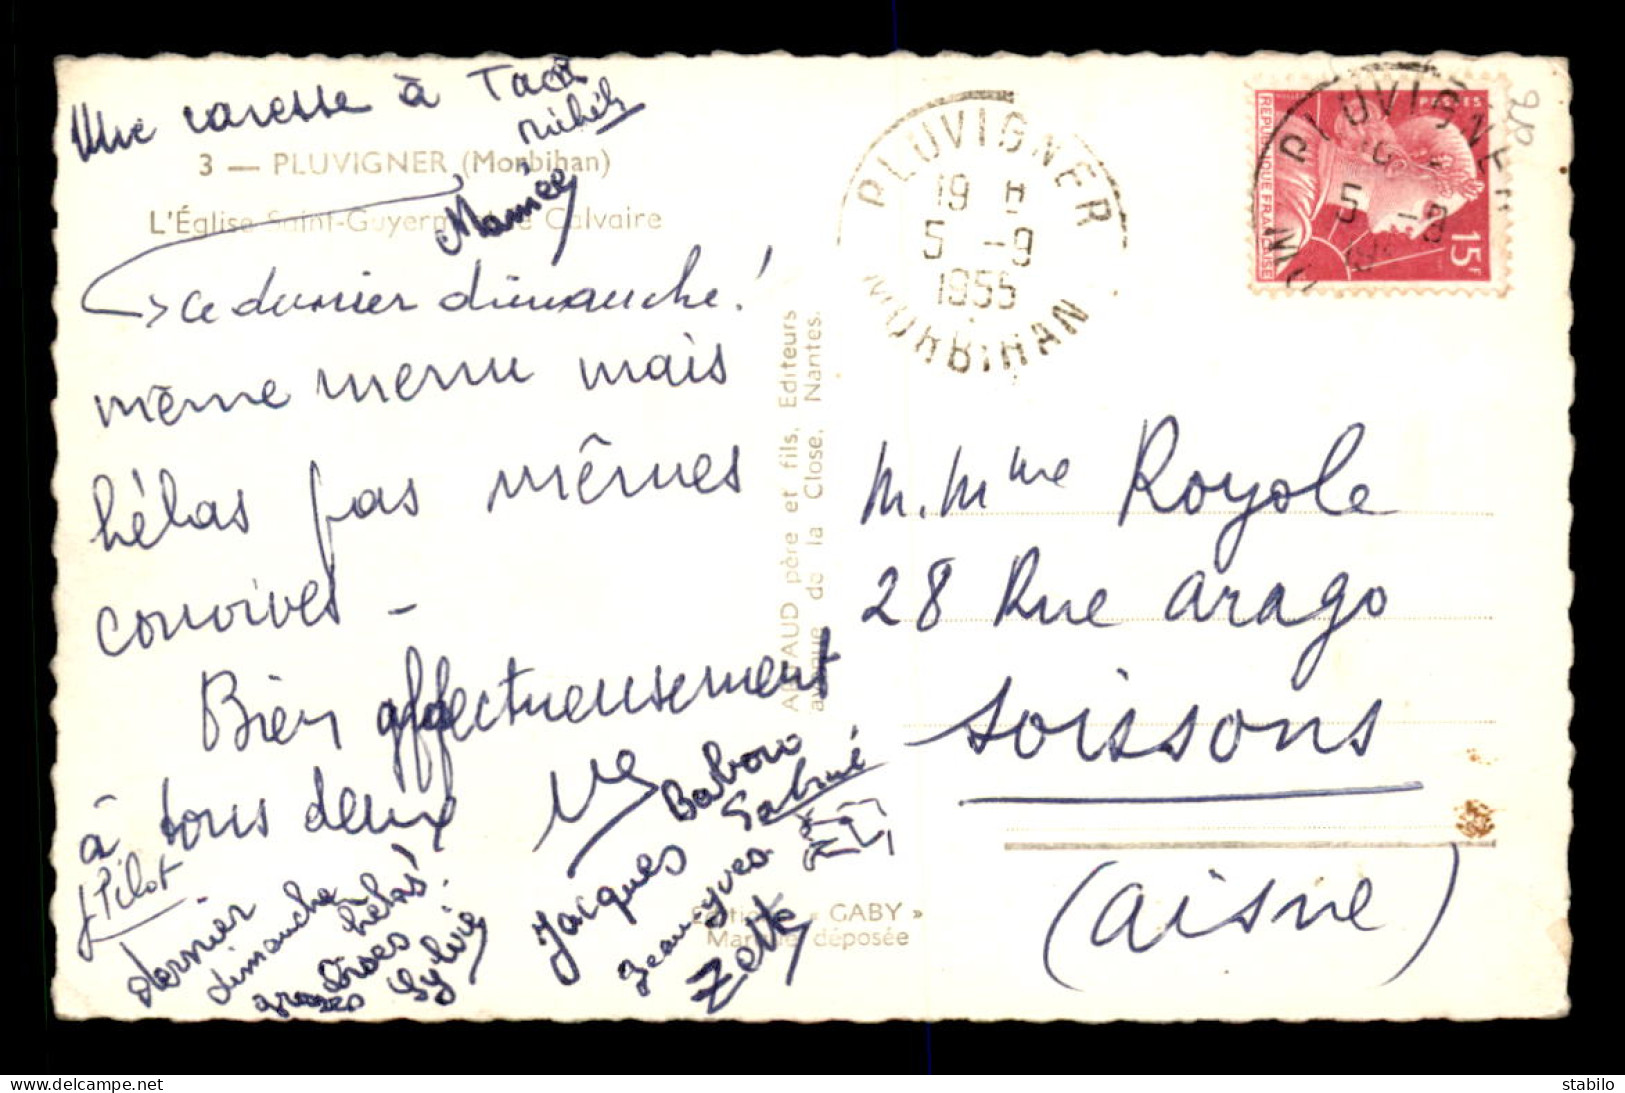 Une caresse à Taca
Michèle
3 — PLUVIGNER (Morbihan)
L'Église Saint-Guyerm Calvaire
Mamée
ce dernier dimanche!
même menu mais
hélas pas mêmes
convives -
Bien affectueusement
à tous deux
J Pilot
dernier
dimanche
hélas!
grosses
bises
Sylvie
Jacques
Babou
Jean-yves
Zette
ARTAUD père et fils, Editeurs
avenue de la Close, Nantes.
Editions « GABY »
Marque déposée
PLUVIGNER
19 H
5 -9
1955
MORBIHAN
PLUVIGNER
5 -9
POSTES
REPUBLIQUE FRANÇAISE
15F
M. Mme Royole
28 Rue Arago
Soissons
(Aisne)
stabilo